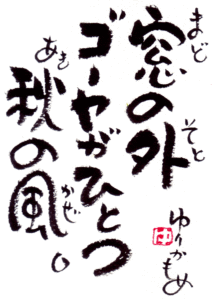 窓の外
まど
そと
ゴーヤがひとつ
秋の風。
あき
かぜ
ゆりかもめ
ゆ